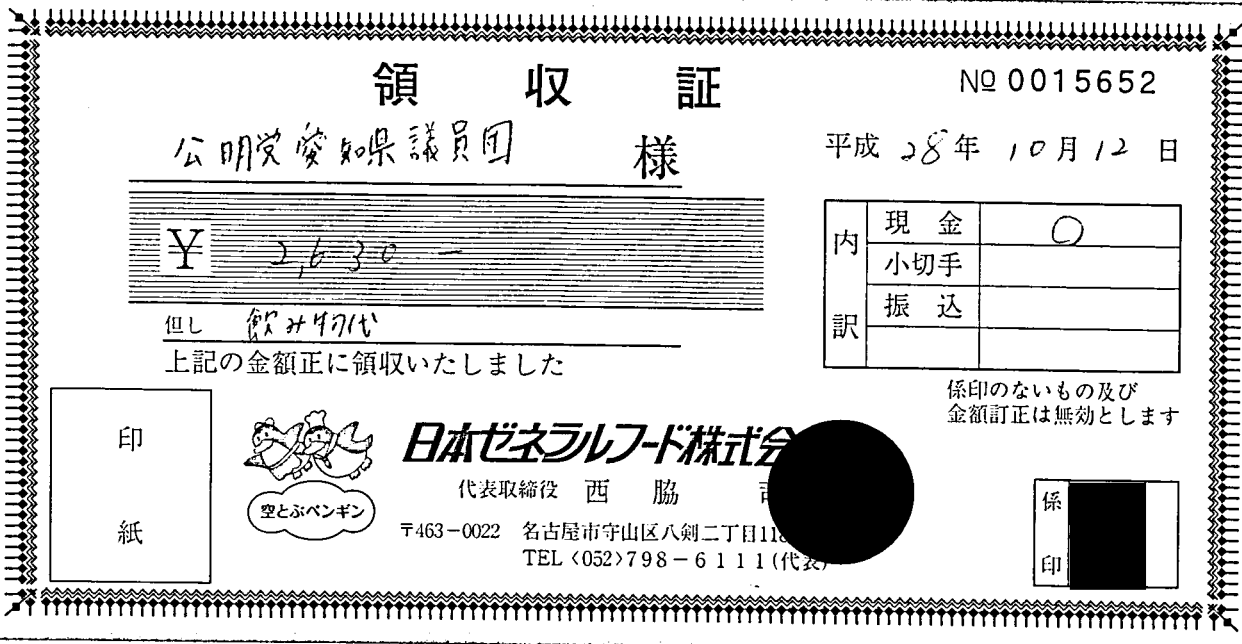 領収証
№ 0015652
公明党愛知県議員団 様
平成 28年 10月 12日
¥ 2,630 —
内訳
現金 ○
小切手
振込
但し 飲み物代
上記の金額正に領収いたしました
係印のないもの及び
金額訂正は無効とします
印紙
空とぶペンギン
日本ゼネラルフード株式会
代表取締役 西脇
〒463-0022 名古屋市守山区八剣二丁目118
TEL〈052〉798-6111(代表)
係印